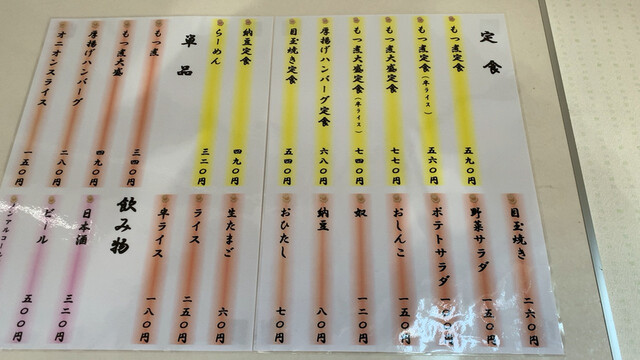 定食
もつ煮定食 五九〇円
もつ煮定食(半ライス) 五六〇円
もつ煮大盛定食 七七〇円
もつ煮大盛定食(半ライス) 七四〇円
厚揚げハンバーグ定食 六八〇円
目玉焼き定食 五四〇円
納豆定食 四九〇円
らーめん 三二〇円
単品
もつ煮 三四〇円
もつ煮大盛 四九〇円
厚揚げハンバーグ 二八〇円
オニオンスライス 一五〇円
目玉焼き 二六〇円
野菜サラダ 一五〇円
ポテトサラダ 円
おしんこ 一五〇円
奴 一二〇円
納豆 八〇円
おひたし 七〇円
生たまご 六〇円
ライス 二五〇円
半ライス 一八〇円
飲み物
日本酒 三二〇円
ビール 五〇〇円
ノンアルコール